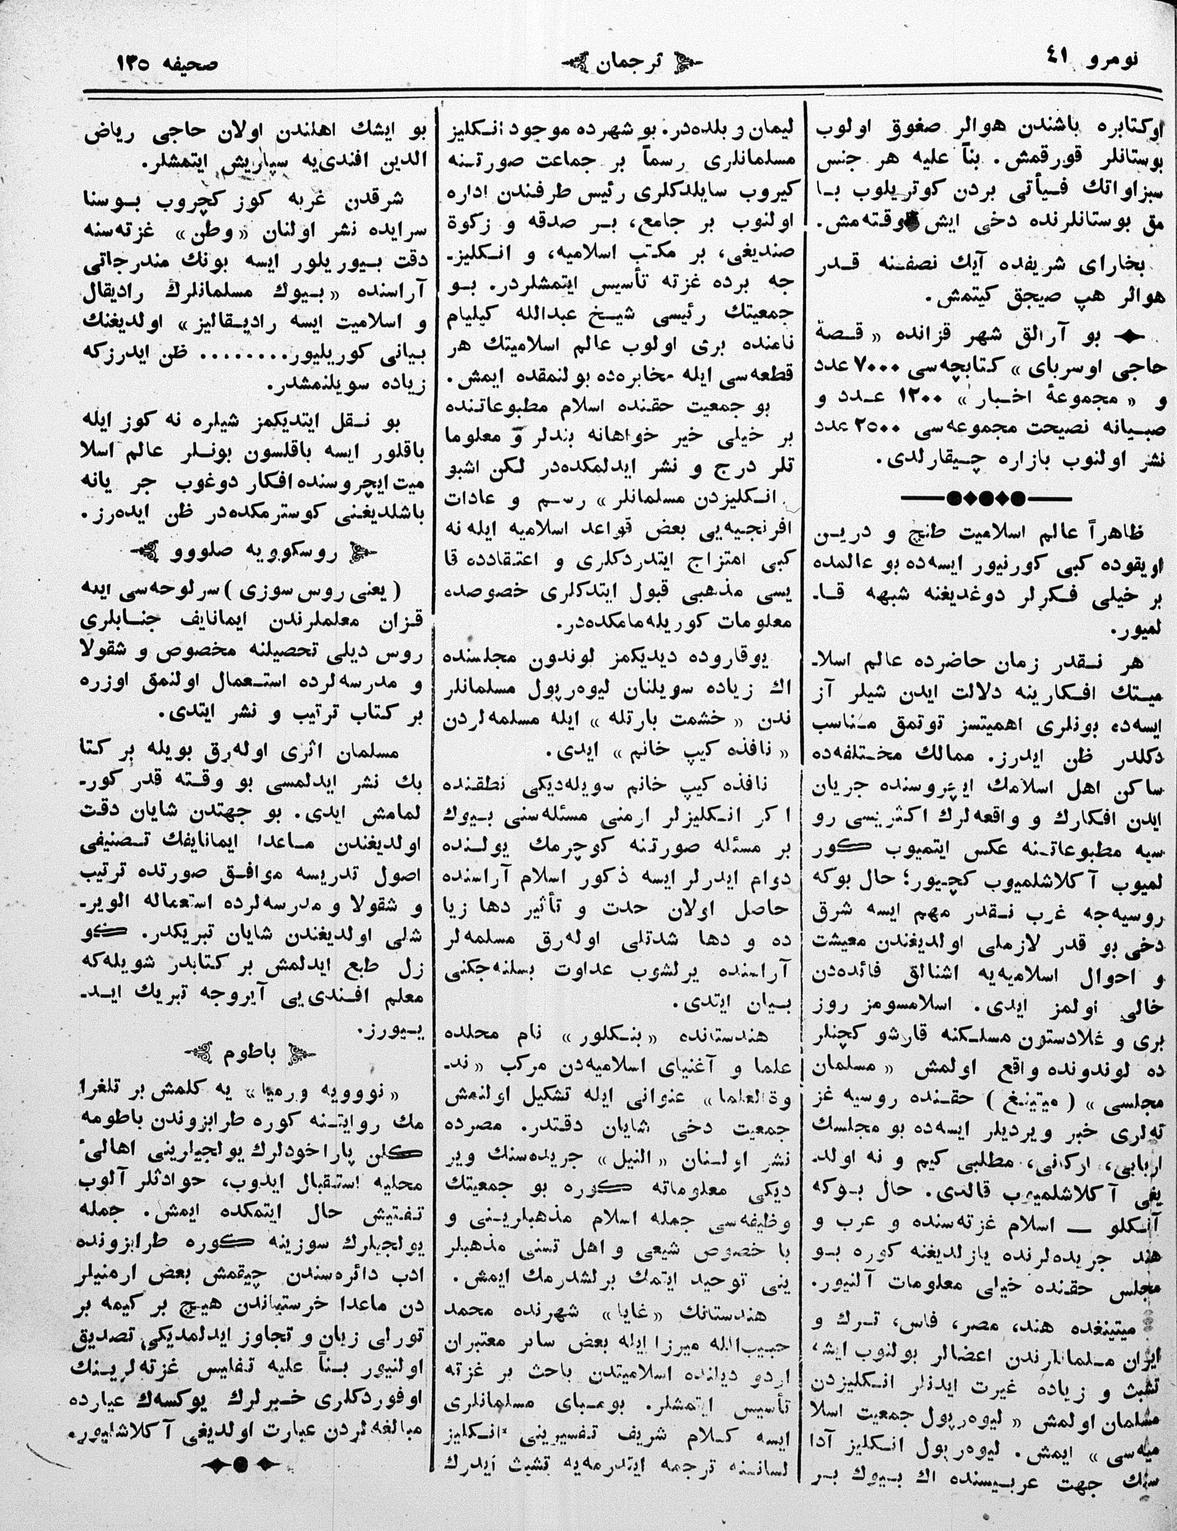 نومرو ٤١
ترجمان
صحیفه ١٣٥
اوکتابره باشندن هوالر صغوق اولوب
بوستانلر قورقمش. بناً علیه هر جنس
سبزاواتك فیأتی بردن کوتریلوب با
مق بوستانلرنده دخی ایش وقته‌مش.
بخارای شریفده آیك نصفنه قدر
هوالر هپ صیجق کیتمش.
بو آرالق شهر قزانده «قصهٔ
حاجی اوسربای» کتابچه‌سی ٧٠٠٠ عدد
و «مجموعهٔ اخبار» ١٢٠٠ عدد و
صبیانه نصیحت مجموعه‌سی ٢٥٠٠ عدد
نشر اولنوب بازاره چیقارلدی.
ظاهراً عالم اسلامیت طنچ و درین
اویقوده کبی کورنیور ایسه‌ده بو عالمده
بر خیلی فکرلر دوغدیغنه شبهه قا-
لمیور.
هر نقدر زمان حاضرده عالم اسلا-
میتك افکارینه دلالت ایدن شیلر آز
ایسه‌ده بونلری اهمیتسز توتمق مناسب
دکلدر ظن ایدرز. ممالك مختلفه‌ده
ساکن اهل اسلامك ایچروسنده جریان
ایدن افکارك و واقعه‌لرك اکثریسی رو
سیه مطبوعاتنه عکس ایتمیوب کور
لمیوب آکلاشلمیوب کچیور؛ حال بوکه
روسیه‌جه غرب نقدر مهم ایسه شرق
دخی بو قدر لازملی اولدیغندن معیشت
و احوال اسلامیه‌یه اشنالق فائده‌دن
خالی اولمز ایدی. اسلامسومز روز
بری و غلادستون مسلکنه قارشو کچنلر
ده لوندونده واقع اولمش «مسلمان
مجلسی» (میتینغ) حقنده روسیه غز
ته‌لری خبر ویردیلر ایسه‌ده بو مجلسك
اربابی، ارکانی، مطلبی کیم و نه اولد-
یغی آکلاشلمیوب قالدی. حال بوکه
آنکلو — اسلام غزته‌سنده و عرب و
هند جریده‌لرنده یازلدیغنه کوره بو
مجلس حقنده خیلی معلومات آلنیور.
میتینغده هند، مصر، فاس، ترك و
ایران مسلمانلرندن اعضالر بولنوب ایشه
تشبث و زیاده غیرت ایدنلر انکلیزدن
مسلمان اولمش «لیوه‌رپول جمعیت اسلا
میه‌سی» ایمش. لیوه‌رپول انکلیز آدا
سنك جهت عربیسنده اك بیوك بر
لیمان و بلده‌در. بو شهرده موجود انکلیز
مسلمانلری رسماً بر جماعت صورتنه
کیروب سایلدکلری رئیس طرفندن اداره
اولنوب بر جامع، بر صدقه و زکوة
صندیغی، بر مکتب اسلامیه، و انکلیز-
جه برده غزته تأسیس ایتمشلردر. بو
جمعیتك رئیسی شیخ عبدالله کیلیام
نامنده بری اولوب عالم اسلامیتك هر
قطعه‌سی ایله مخابره‌ده بولنمقده ایمش.
بو جمعیت حقنده اسلام مطبوعاتنده
بر خیلی خیر خواهانه بندلر و معلوما
تلر درج و نشر ایدلمکده‌در لکن اشبو
انکلیزدن مسلمانلر» رسم و عادات
افرنجیه‌یی بعض قواعد اسلامیه ایله نه
کبی امتزاج ایتدردکلری و اعتقادده قا
یسی مذهبی قبول ایتدکلری خصوصده
معلومات کوریله‌مامکده‌در.
یوقاروده دیدیکمز لوندون مجلسنده
اك زیاده سویلنان لیوه‌رپول مسلمانلر
ندن «خشمت بارتله» ایله مسلمه‌لردن
«نافذه کیپ خانم» ایدی.
نافذه کیپ خانم سویله‌دیکی نطقنده
اکر انکلیزلر ارمنی مسئله‌سنی بیوك
بر مسئله صورتنه کوچرمك یولنده
دوام ایدرلر ایسه ذکور اسلام آراسنده
حاصل اولان حدت و تأثیر دها زیا
ده و دها شدتلی اوله‌رق مسلمه‌لر
آراسنده یرلشوب عداوت بسلنه‌جکنی
بیان ایتدی.
هندستانده «بنکلور» نام محلده
علما و أغنیای اسلامیه‌دن مرکب «ند-
وة‌العلما» عنوانی ایله تشکیل اولنمش
جمعیت دخی شایان دقتدر. مصرده
نشر اولنان «النیل» جریده‌سنك ویر
دیکی معلوماته کوره بو جمعیتك
وظیفه‌سی جمله اسلام مذهبلرینی و
با خصوص شیعی و اهل تسنی مذهبلر
ینی توحید ایتمك برلشدرمك ایمش.
هندستانك «غایا» شهرنده محمد
حبیب‌الله میرزا ایله بعض سائر معتبران
اردو دیلنده اسلامیتدن باحث بر غزته
تأسیس ایتمشلر. بومبای مسلمانلری
ایسه کلام شریف تفسیرینی انکلیز
لسانه ترجمه ایتدرمه‌یه تشبث ایدرك
بو ایشك اهلندن اولان حاجی ریاض
الدین افندی‌یه سپاریش ایتمشلر.
شرقدن غربه کوز کچروب بوسنا
سرایده نشر اولنان «وطن» غزته‌سنه
دقت بیوریلور ایسه بونك مندرجاتی
آراسنده «بیوك مسلمانلرك رادیقال
و اسلامیت ایسه رادیقالیز» اولدیغنك
بیانی کوریلیور........ ظن ایدرزکه
زیاده سویلنمشدر.
بو نقل ایتدیکمز شیلره نه کوز ایله
باقلور ایسه باقلسون بونلر عالم اسلا
میت ایچروسنده افکار دوغوب جریانه
باشلدیغنی کوسترمکده‌در ظن ایده‌رز.
روسکوویه صلووو
(یعنی روس سوزی) سرلوحه‌سی ایله
قزان معلملرندن ایمانایف جنابلری
روس دیلی تحصیلنه مخصوص و شقولا
و مدرسه‌لرده استعمال اولنمق اوزره
بر کتاب ترتیب و نشر ایتدی.
مسلمان اثری اوله‌رق بویله بر کتا
بك نشر ایدلمسی بو وقته قدر کور-
لمامش ایدی. بو جهتدن شایان دقت
اولدیغندن ماعدا ایمانایفك تصنیفی
اصول تدریسه موافق صورتده ترتیب
و شقولا و مدرسه‌لرده استعماله الویر-
شلی اولدیغندن شایان تبریکدر. کو
زل طبع ایدلمش بر کتابدر شویله‌که
معلم افندی‌یی آیروجه تبریك اید-
یورز.
باطوم
«نوویه ورمیا» یه کلمش بر تلغرا
مك روایتنه کوره طرابزوندن باطومه
کلن پاراخودلرك یولجیلرینی اهالیٔ
محلیه استقبال ایدوب، حوادثلر آلوب
تفتیش حال ایتمکده ایمش. جمله
یولجیلرك سوزینه کوره طرابزونده
ادب دائره‌سندن چیقمش بعض ارمنیلر
دن ماعدا خرستیاندن هیچ بر کیمه بر
تورلی زیان و تجاوز ایدلمدیکی تصدیق
اولنیور بناً علیه تفلیس غزته‌لرینك
اوقوردکلری خبرلرك یوکسه‌ك عیارده
مبالغه‌لردن عبارت اولدیغی آکلاشلیور.